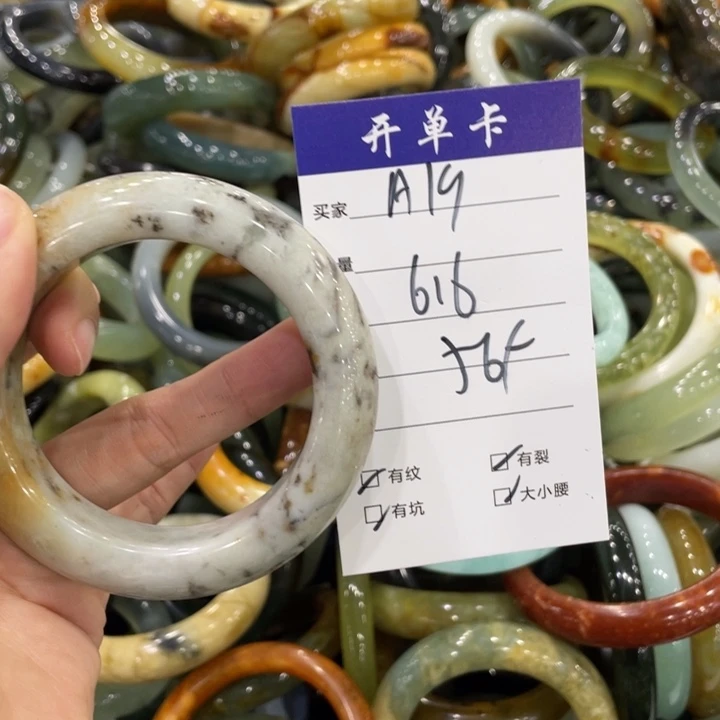 开单卡
买家 A19
量
616
56r
有纹 有裂
有坑 大小腰